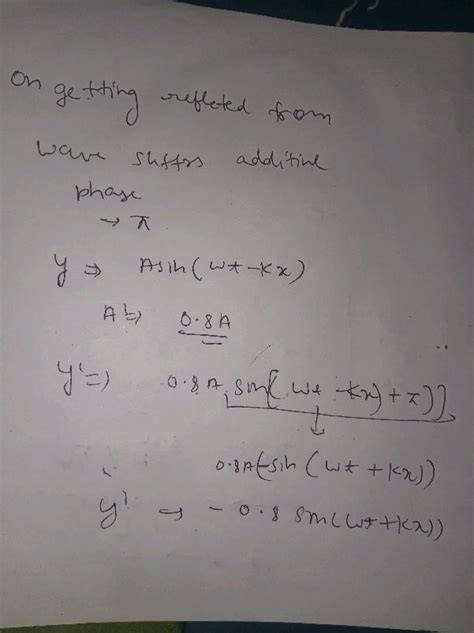 On getting refleted from
wave suffrs additive
phase
→ π
y ⇒ Asin(wt-kx)
A' ⇒ 0.8A
y' ⇒ 0.8A sin[(wt -kx)+π)]
0.8A(-sin(wt+kx))
y' → -0.8 sin(wt+kx))